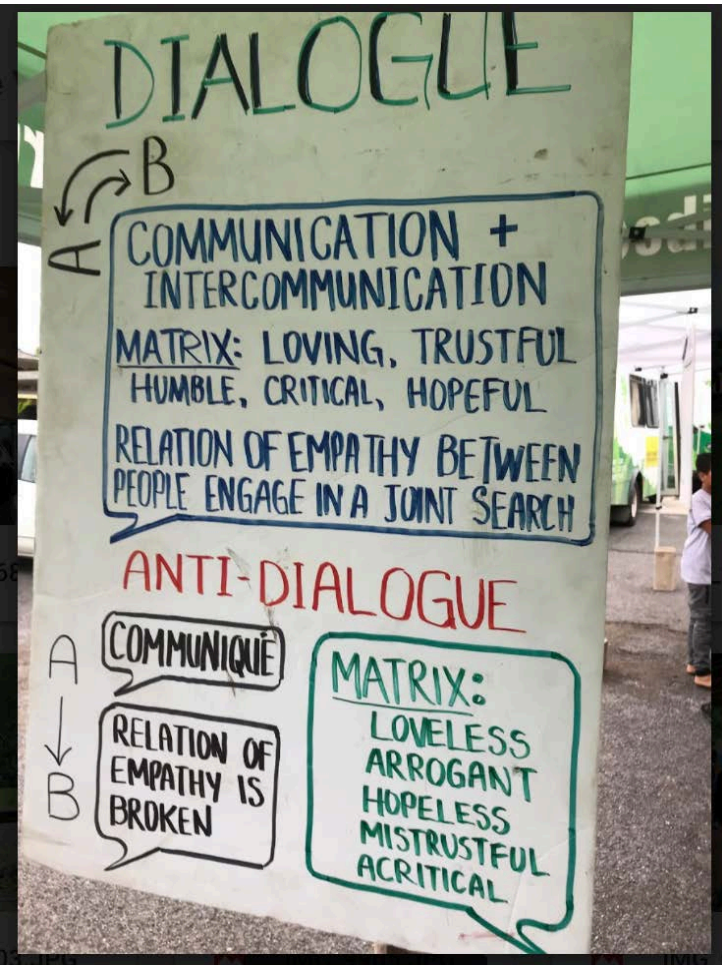 DIALOGUE
B
A
COMMUNICATION +
INTERCOMMUNICATION
MATRIX: LOVING, TRUSTFUL
HUMBLE, CRITICAL, HOPEFUL
RELATION OF EMPATHY BETWEEN
PEOPLE ENGAGE IN A JOINT SEARCH
ANTI-DIALOGUE
A
B
COMMUNIQUÉ
RELATION OF
EMPATHY IS
BROKEN
MATRIX:
LOVELESS
ARROGANT
HOPELESS
MISTRUSTFUL
ACRITICAL